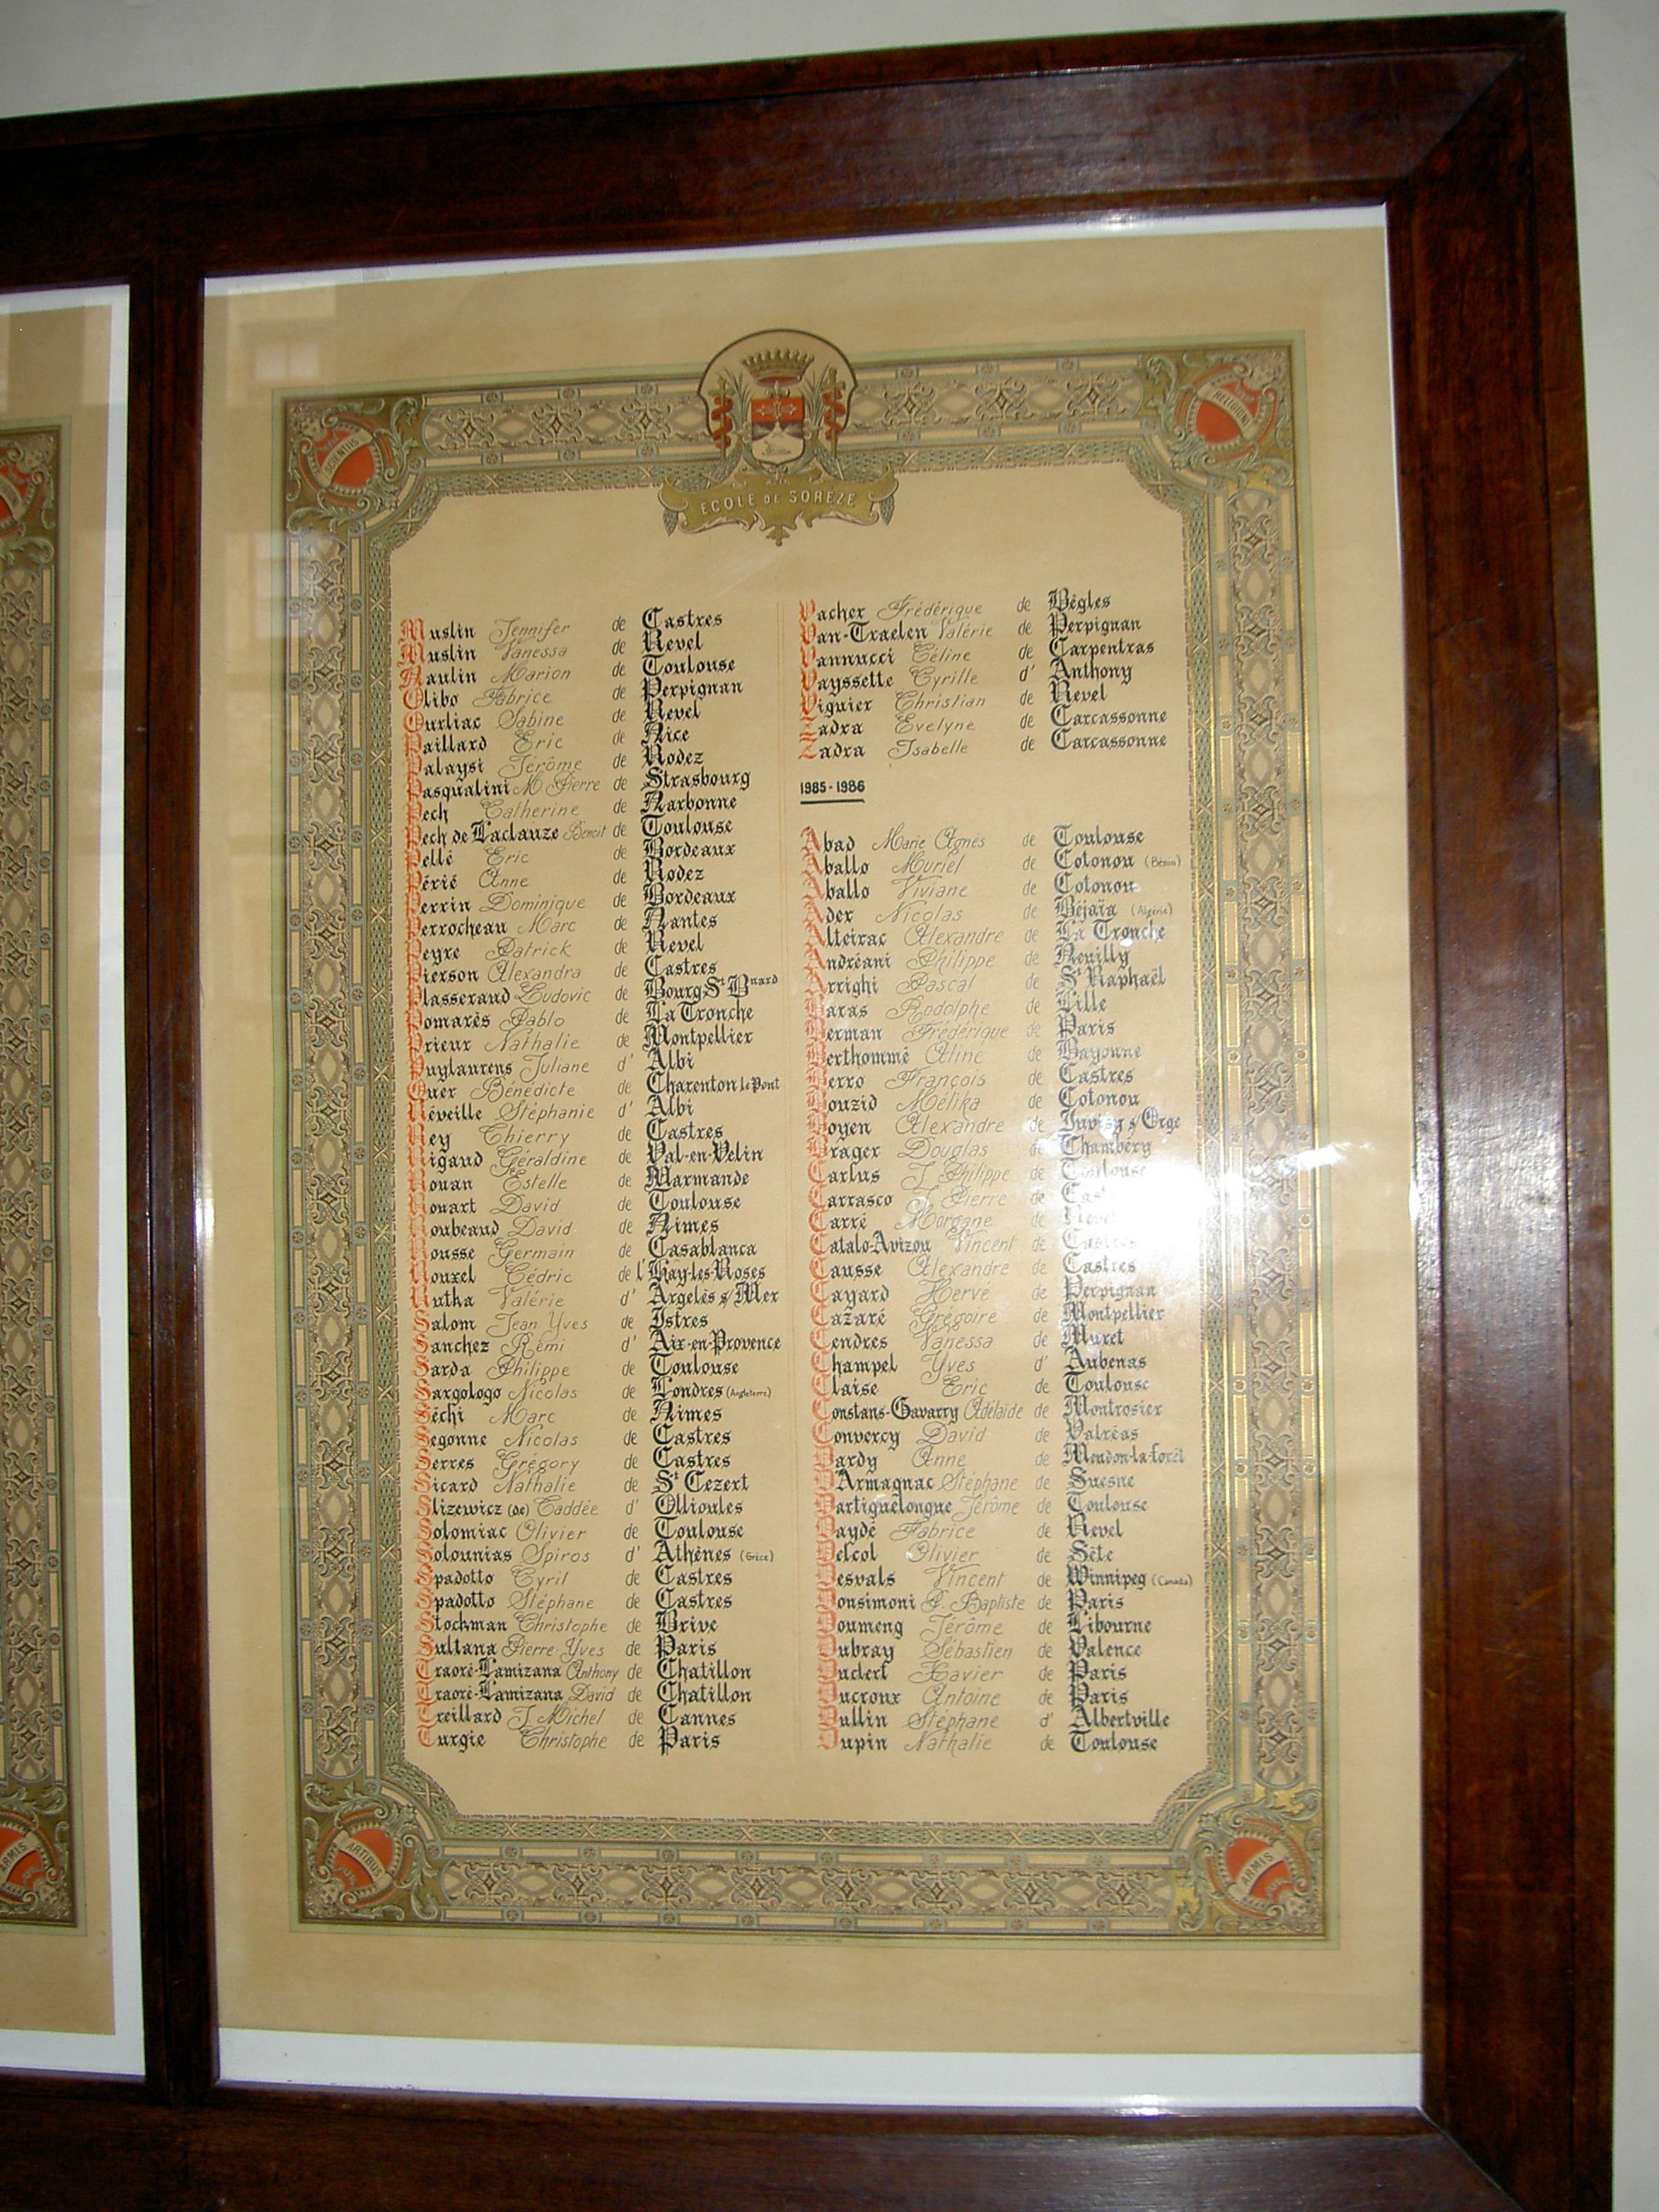 SCIENTIIS
RELIGIONI
ECOLE DE SORÈZE
Muslin Jennifer de Castres
Muslin Vanessa de Revel
Naulin Marion de Toulouse
Olibo Fabrice de Perpignan
Ourliac Sabine de Revel
Paillard Eric de Nice
Palaysi Jérôme de Rodez
Pasqualini M. Pierre de Strasbourg
Pech Catherine de Narbonne
Pech de Laclauze Benoit de Toulouse
Pellé Eric de Bordeaux
Périé Anne de Rodez
Perrin Dominique de Bordeaux
Perrocheau Marc de Nantes
Peyre Patrick de Revel
Pierson Alexandra de Castres
Plasseraud Ludovic de Bourg St Bnard
Pomarès Pablo de La Tronche
Prieur Nathalie de Montpellier
Puylaurens Juliane d' Albi
Quer Bénédicte de Charenton le Pont
Réveille Stéphanie d' Albi
Rey Thierry de Castres
Rigaud Géraldine de Val-en-Velin
Rouan Estelle de Marmande
Rouart David de Toulouse
Roubeaud David de Nimes
Rousse Germain de Casablanca
Rouxel Cédric de l'Hay-les-Roses
Rutka Valérie d' Argelès s/Mer
Salom Jean Yves de Istres
Sanchez Rémi d' Aix-en-Provence
Sarda Philippe de Toulouse
Sargologo Nicolas de Londres (Angleterre)
Séchi Marc de Nimes
Segonne Nicolas de Castres
Serres Grégory de Castres
Sicard Nathalie de St Cezert
Slizewicz (de) Caddée d' Ollioules
Solomiac Olivier de Toulouse
Solounias Spiros d' Athènes (Grèce)
Spadotto Cyril de Castres
Spadotto Stéphane de Castres
Stockman Christophe de Brive
Sultana Pierre-Yves de Paris
Traoré-Lamizana Anthony de Chatillon
Traoré-Lamizana David de Chatillon
Treillard J. Michel de Cannes
Turgie Christophe de Paris
Vacher Frédérique de Bègles
Van-Traelen Valérie de Perpignan
Vannucci Céline de Carpentras
Vayssette Cyrille d' Anthony
Viguier Christian de Revel
Zadra Evelyne de Carcassonne
Zadra Isabelle de Carcassonne
1985-1986
Abad Marie Agnès de Toulouse
Aballo Muriel de Cotonou (Bénin)
Aballo Viviane de Cotonou
Ader Nicolas de Béjaïa (Algérie)
Alteirac Alexandre de La Tronche
Andréani Philippe de Neuilly
Arrighi Pascal de St Raphaël
Baras Rodolphe de Lille
Berman Frédérique de Paris
Berthommé Aline de Bayonne
Berro François de Castres
Bouzid Mélika de Cotonou
Boyen Alexandre de Juvisy s/Orge
Brager Douglas de Chambéry
Carlus J. Philippe de Toulouse
Carrasco J. Pierre de
Carré Morgane de Revel
Catalo-Avizou Vincent de Castres
Causse Alexandre de Castres
Cayard Hervé de Perpignan
Cazaré Grégoire de Montpellier
Cendres Vanessa de Muret
Champel Yves d' Aubenas
Claise Eric de Toulouse
Constans-Gavarry Adélaïde de Montrosier
Convercy David de Valréas
Dardy Anne de Meudon-la-forêt
D'Armagnac Stéphane de Suesne
Dartiguelongue Jérôme de Toulouse
Daydé Fabrice de Revel
Delcol Olivier de Sète
Desvals Vincent de Winnipeg (Canada)
Donsimoni J. Baptiste de Paris
Doumeng Jérôme de Libourne
Dubray Sébastien de Valence
Duclert Xavier de Paris
Ducroux Antoine de Paris
Dullin Stéphane d' Albertville
Dupin Nathalie de Toulouse
ARTIBUS
ARMIS
ARMIS